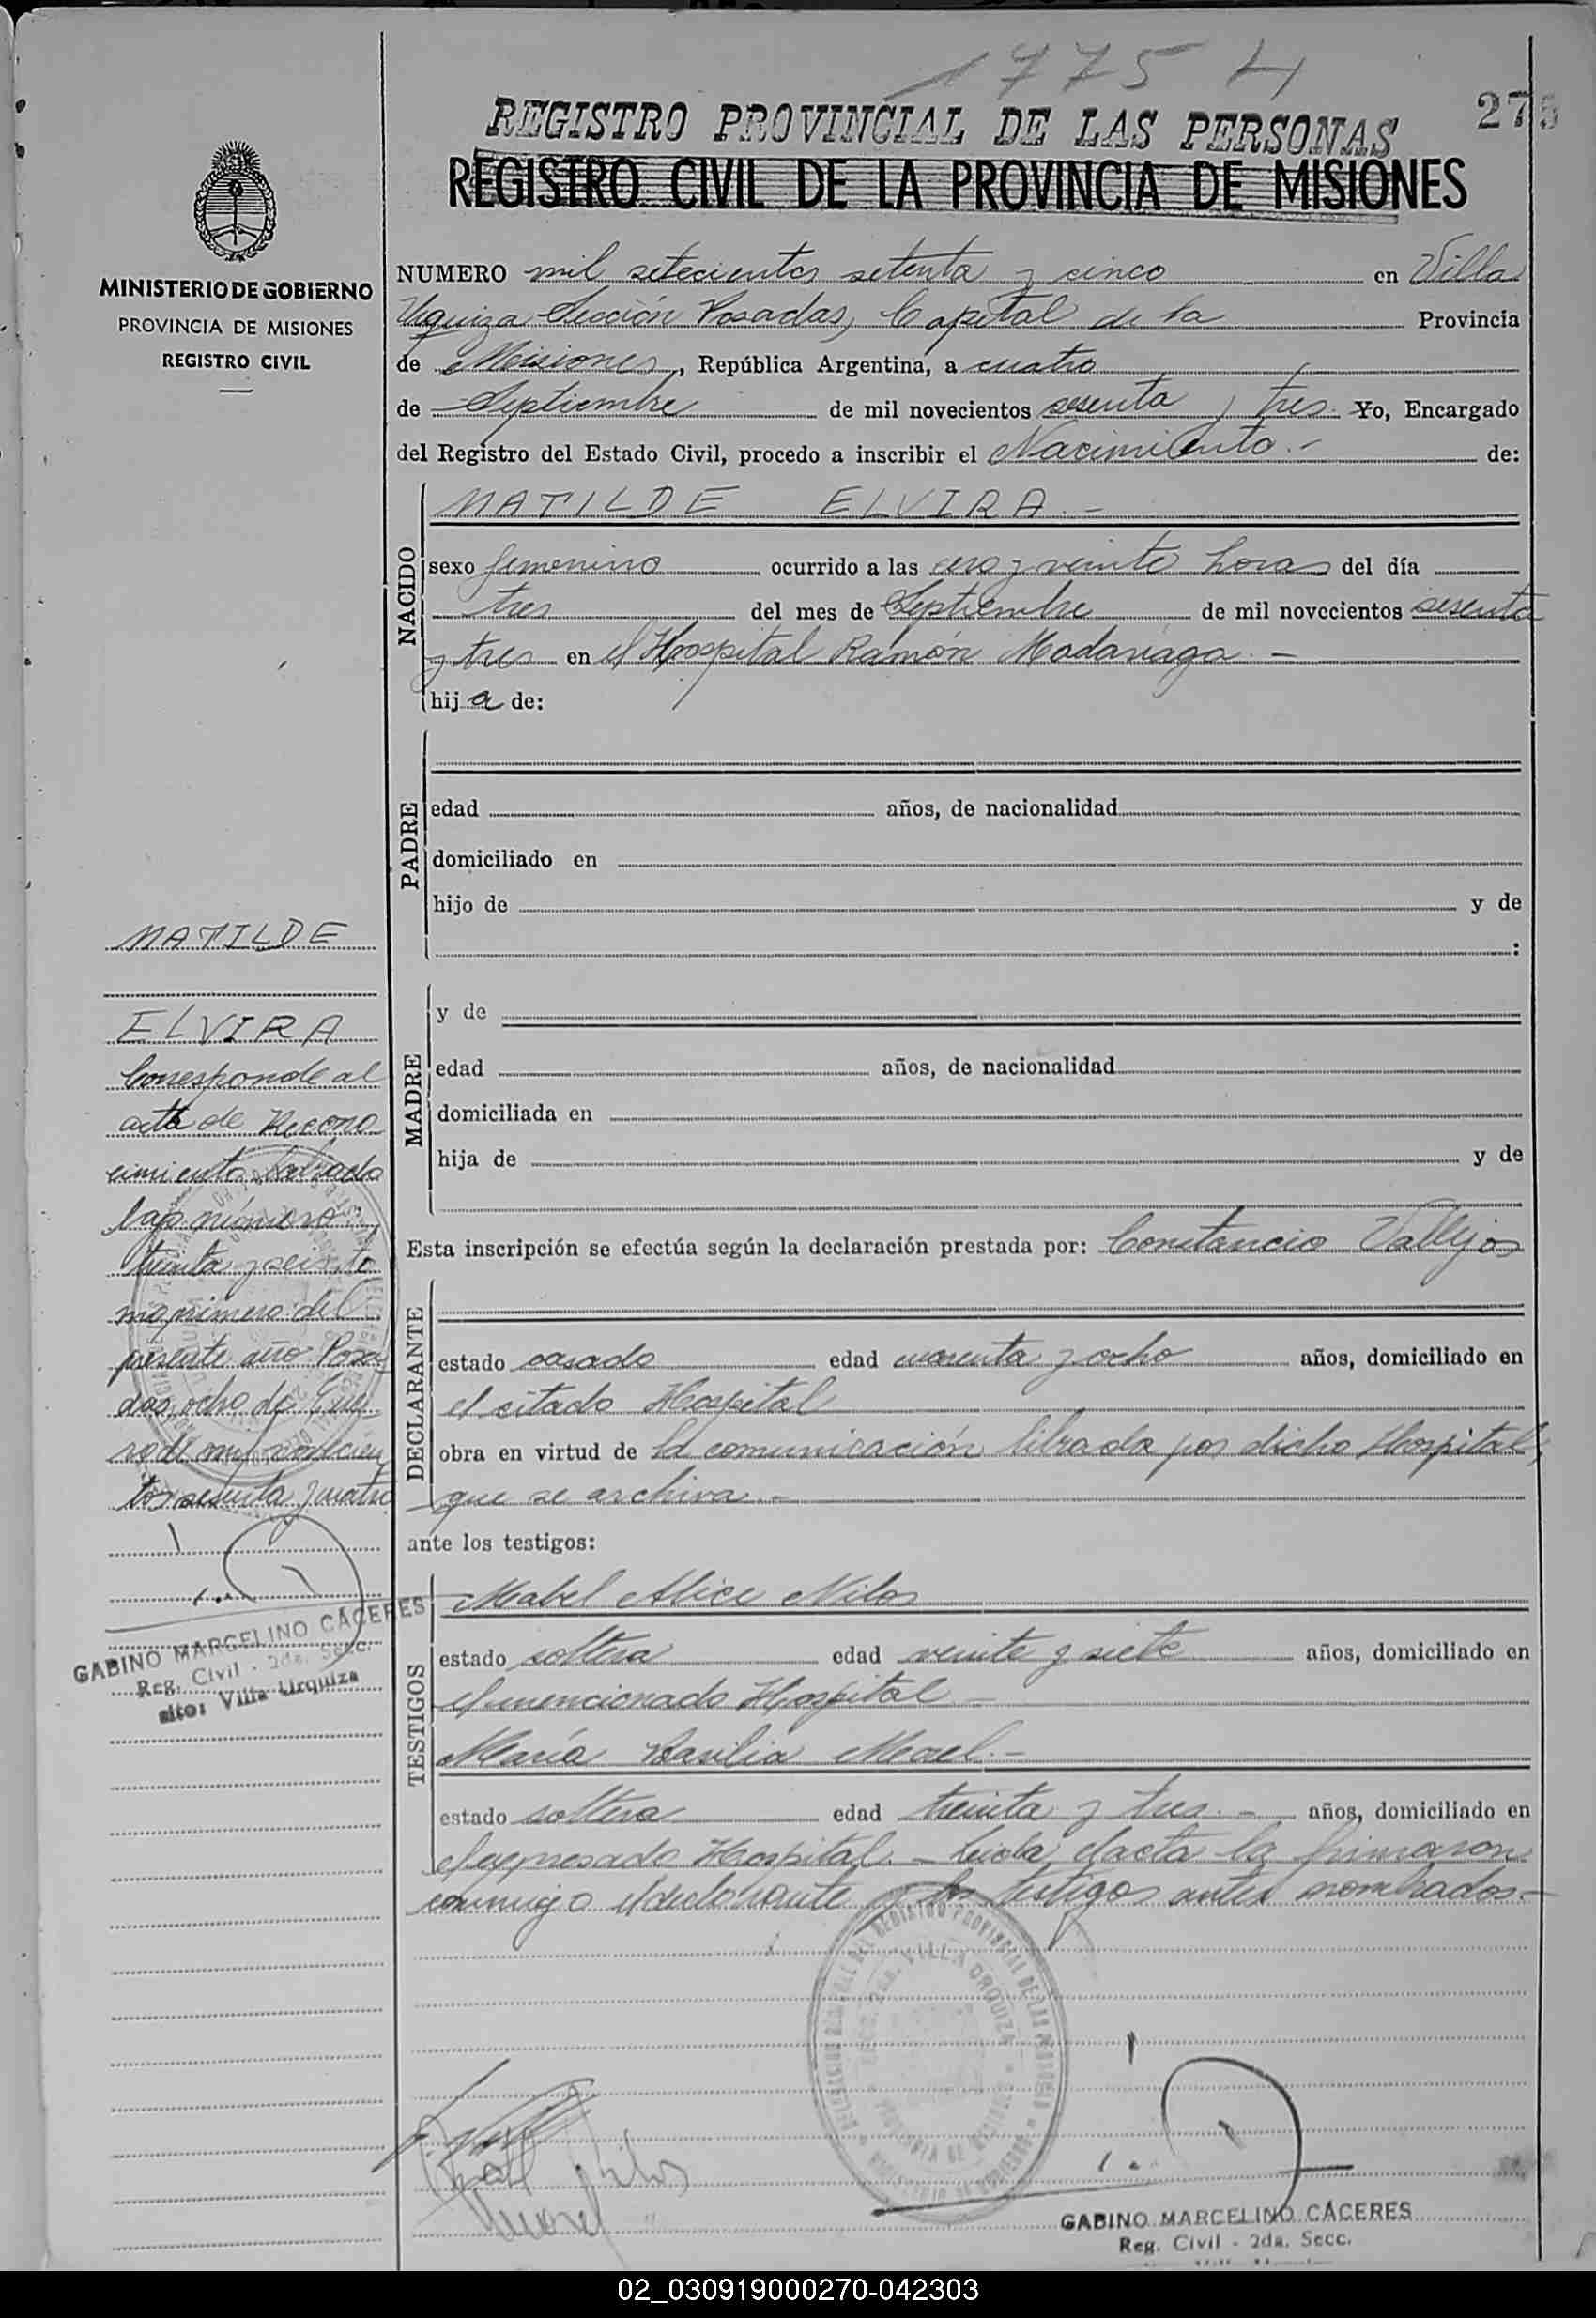 1775 4
275
REGISTRO PROVINCIAL DE LAS PERSONAS
REGISTRO CIVIL DE LA PROVINCIA DE MISIONES
MINISTERIO DE GOBIERNO
PROVINCIA DE MISIONES
REGISTRO CIVIL
NUMERO mil setecientos setenta y cinco en Villa
Urquiza Sección Posadas, Capital de la Provincia
de Misiones, República Argentina, a cuatro
de Septiembre de mil novecientos sesenta y tres. Yo, Encargado
del Registro del Estado Civil, procedo a inscribir el Nacimiento.- de:
NACIDO
MATILDE ELVIRA.-
sexo femenino ocurrido a las cero y veinte horas del día
tres del mes de Septiembre de mil novecientos sesenta
y tres en el Hospital Ramón Madariaga.-
hija de:
PADRE
edad años, de nacionalidad
domiciliado en
hijo de y de
:
MADRE
y de
edad años, de nacionalidad
domiciliada en
hija de y de
Esta inscripción se efectúa según la declaración prestada por: Constancio Vallejos
DECLARANTE
estado casado edad cuarenta y ocho años, domiciliado en
el citado Hospital
obra en virtud de la comunicación librada por dicho Hospital,
que se archiva.-
ante los testigos:
TESTIGOS
Mabel Alice Nilos
estado soltera edad veinte y siete años, domiciliado en
el mencionado Hospital -
María Basilia Morel.-
estado soltera edad treinta y tres.- años, domiciliado en
el expresado Hospital.- Leida el acta la firmaron
conmigo el declarante y los testigos antes nombrados.-
MATILDE
ELVIRA
Corresponde al
acta de Recono
cimiento labrada
bajo número
treinta y seis, to
mo primero del
presente año Posa
das, ocho de Ene
ro de mil novecien
tos sesenta y cuatro
GABINO MARCELINO CÁCERES
Reg. Civil - 2da. Secc.
sito: Villa Urquiza
GABINO MARCELINO CÁCERES
Reg. Civil - 2da. Secc.
02_030919000270-042303